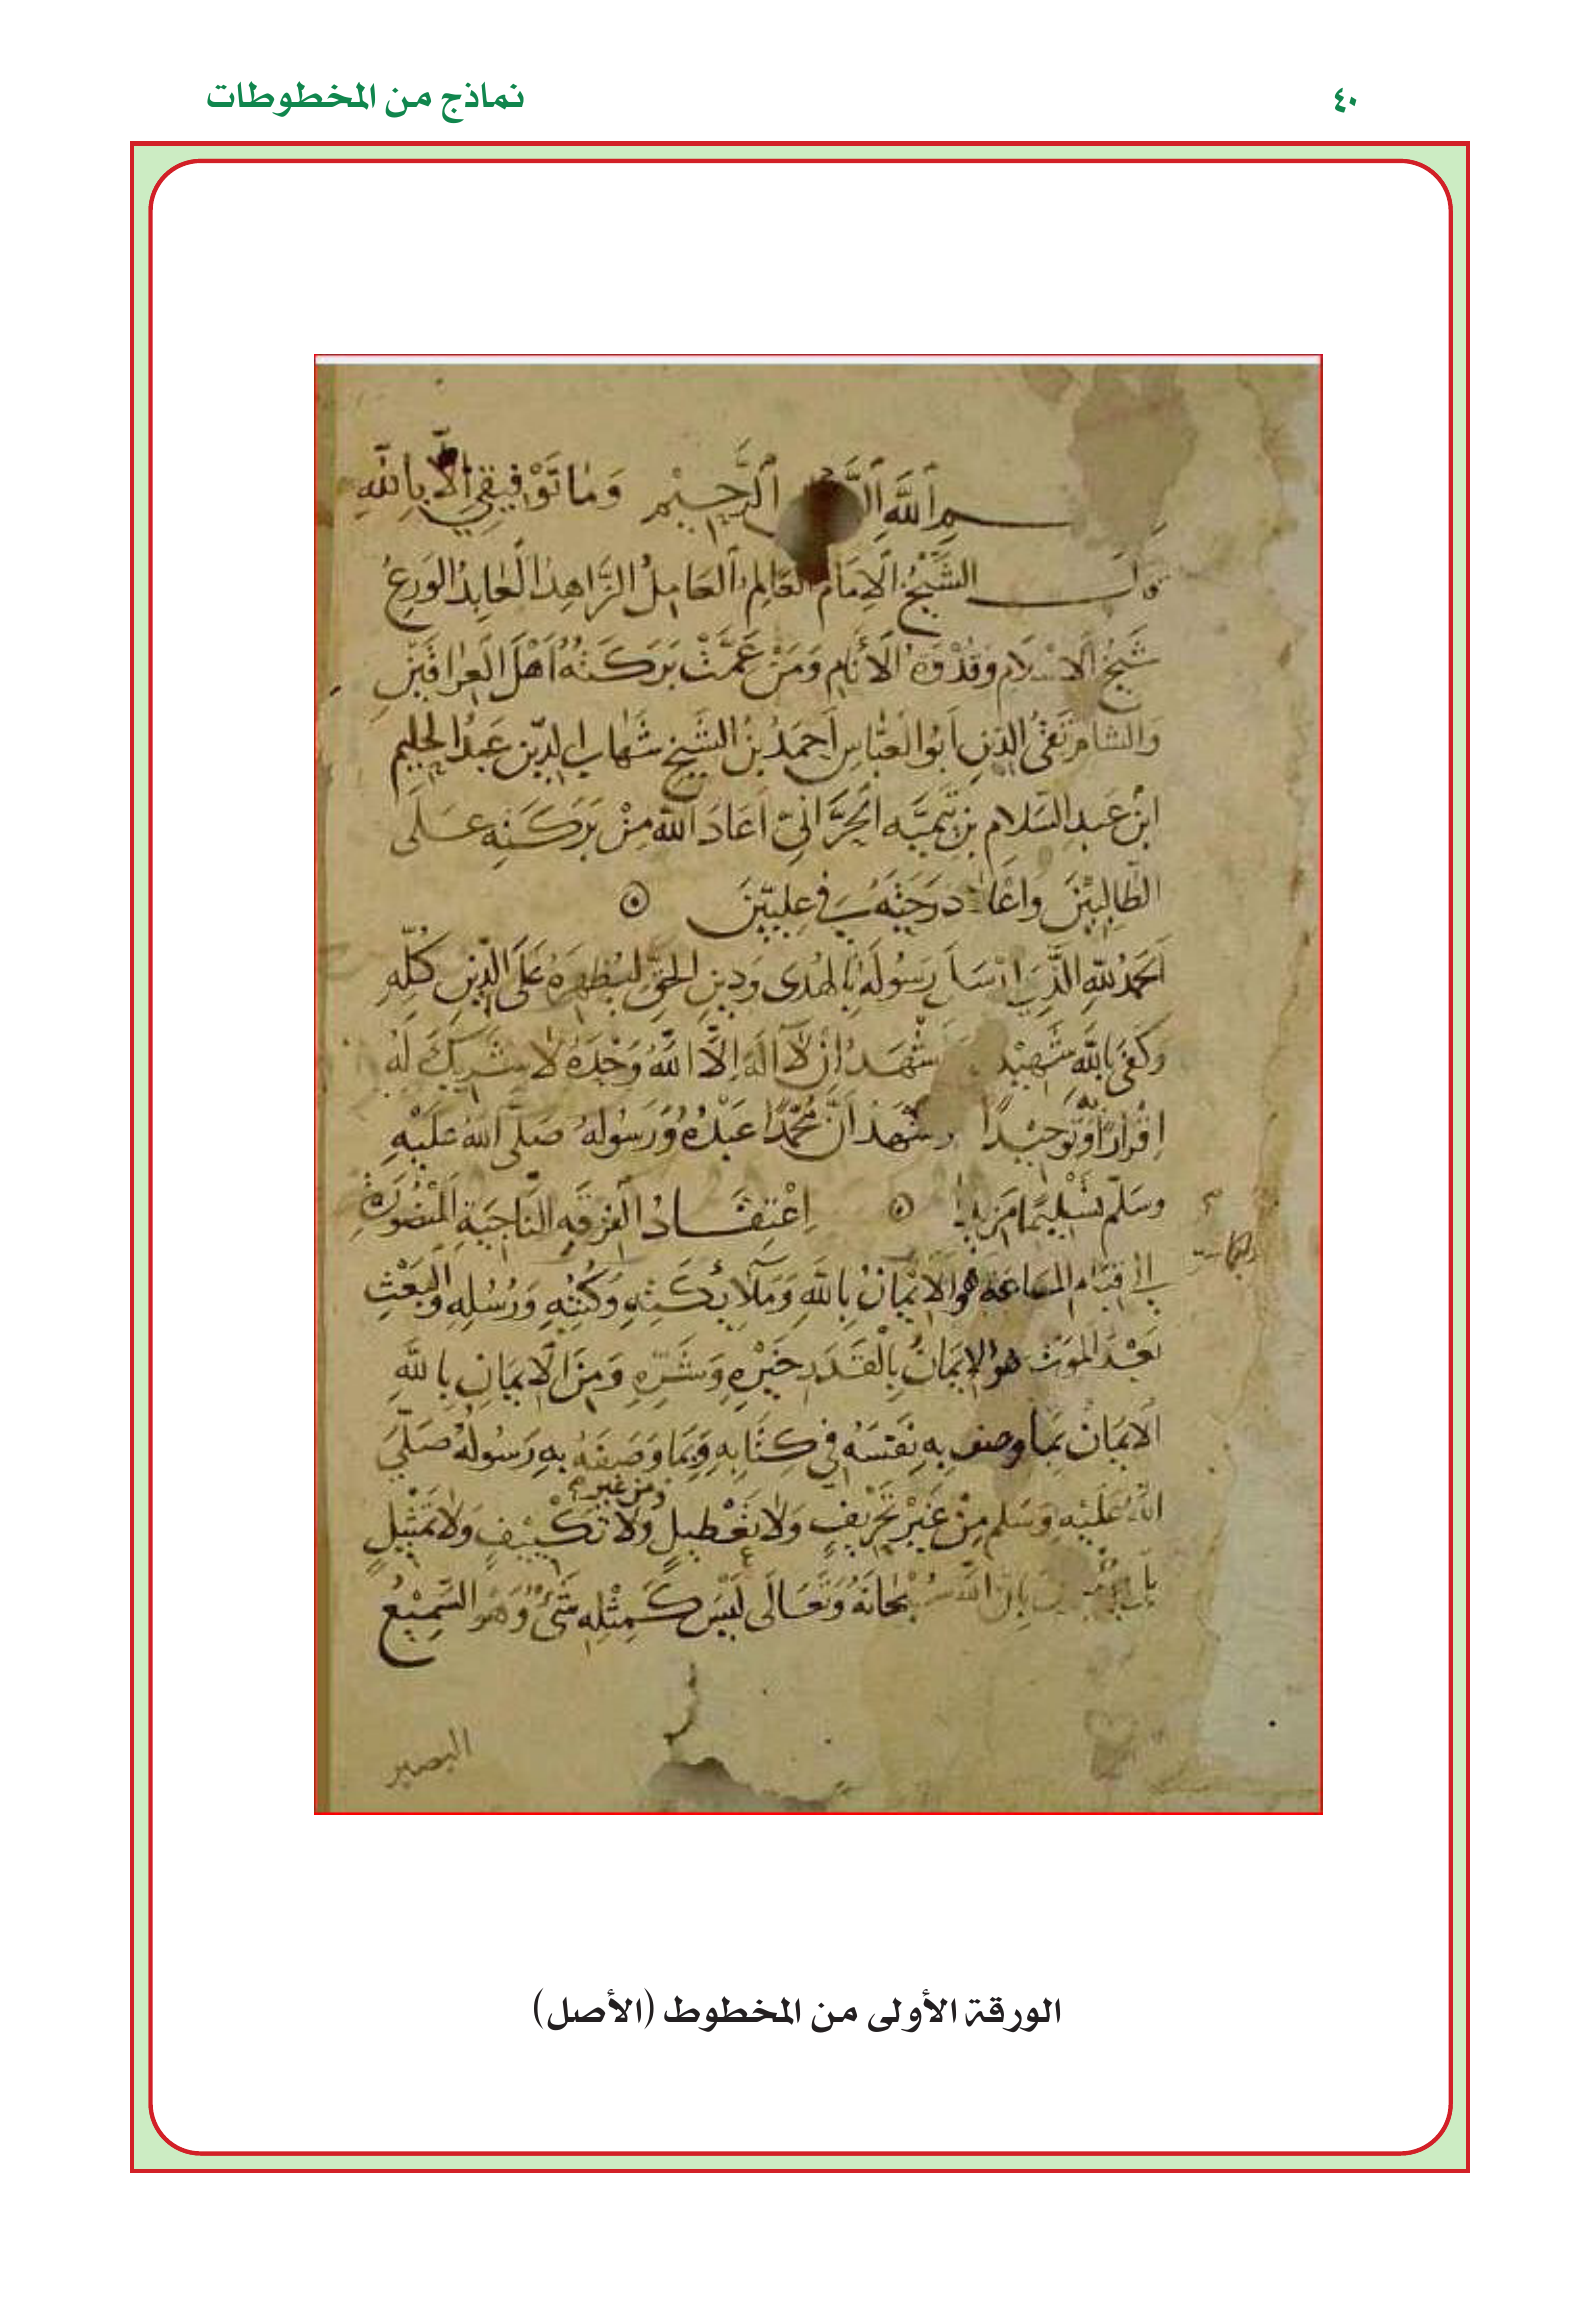 نماذج من المخطوطات
٤٠
ـسم الله الرَّ الرَّحِيْمِ وَمَا تَوْفيقي إلّا بِاللهِ
قال الشَّيْخُ الإمَام العَالِم العَامِلُ الزَّاهِدُ العَابِدُ الوَرِعُ
شَيخُ الاسْلام وقُدْوَة الأنَام وَمَنْ عَمَّتْ بَرَكَتُهُ اَهْلَ العِرَاقَيْنِ
وَالشام تَقيُّ الدّين اَبُو العَبَّاس اَحمَدُ بْنُ الشَّيخ شهَاب الدِّين عَبدُ الحليم
ابن عَبد السَّلام بن تَيميَّه الحَرَّانيّ اَعَادَ اللهُ مِنْ بَرَكَتِه عَلَى
الطَّالِبِيْنَ وَاعْلا دَرَجَتَهُ في عِلِيّينَ ⊙
اَلحَمدُ للهِ الَّذِي ارْسَل رَسُولَهُ بِالهُدى وَدِينِ الحَقِّ ليُظهِرَهُ عَلَى الدِّينِ كُلِّهِ
وَكفَى بِاللهِ شَهِيْدا شْهَدُ ان لَّا اِلَهَ اِلَّا اللهُ وَحْدَهُ لَا شَرِيكَ لَهُ
اِقْرَارًا به وَتَوحيْدًا وشْهَدُ اَنَّ مُحَمَّدًا عَبْدُهُ وَرَسُولهُ صَلَّى الله عَلَيْهِ
وسَلّم تسْلِيمًا مَزِيدا ⊙ اِعْتِقَــادُ الفِرقَهِ النَّاجِيَةِ المَنْصُورَةِ
إلى قيَام السَاعَة هُو الاِيْمَانُ بِاللهِ وَمَلَائِكَتِهِ وَكُتُبِهِ وَرُسُلِهِ وَالبَعْثِ
بَعْدَ المَوْت هو الاِيمَانُ بِالْقَدَرِ خَيْرِهِ وَشَرِّهِ وَمِنَ الايمَانِ بِاللهِ
الايمَانُ بمَا وصف بِهِ نَفْسَهُ في كِتَابِهِ وَبِمَا وَصَفَهُ بِهِ رَسُولهُ صَلَّى
الله عَلَيْهِ وَسَلم مِنْ غَيْرِ تَحْرِيْفٍ وَلَا تَعْطِيلٍ ومن غير وَلَا تَكْيِيْفٍ وَلَا تَمْثِيْلٍ
بِانَّ اللهَ سُبْحَانَهُ وَتَعَالَى لَيْسَ كَمِثْلِهِ شَيْءٌ وَهُوَ السَّمِيْعُ
البصير
الورقة الأولى من المخطوط (الأصل)